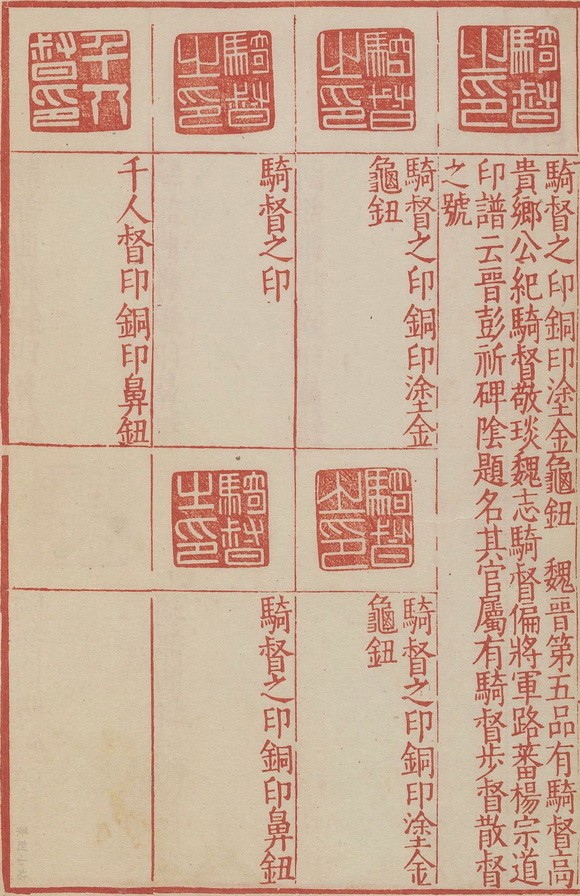 騎督之印
騎督之印銅印塗金龜鈕　魏晉第五品有騎督高
貴鄉公紀騎督敬琰魏志騎督偏將軍路蕃楊宗道
印譜云晉彭祈碑陰題名其官屬有騎督步督散督
之號
騎督之印
騎督之印銅印塗金
龜鈕
騎督之印
騎督之印銅印塗金
龜鈕
騎督之印
騎督之印
騎督之印
騎督之印銅印鼻鈕
千人督印
千人督印銅印鼻鈕